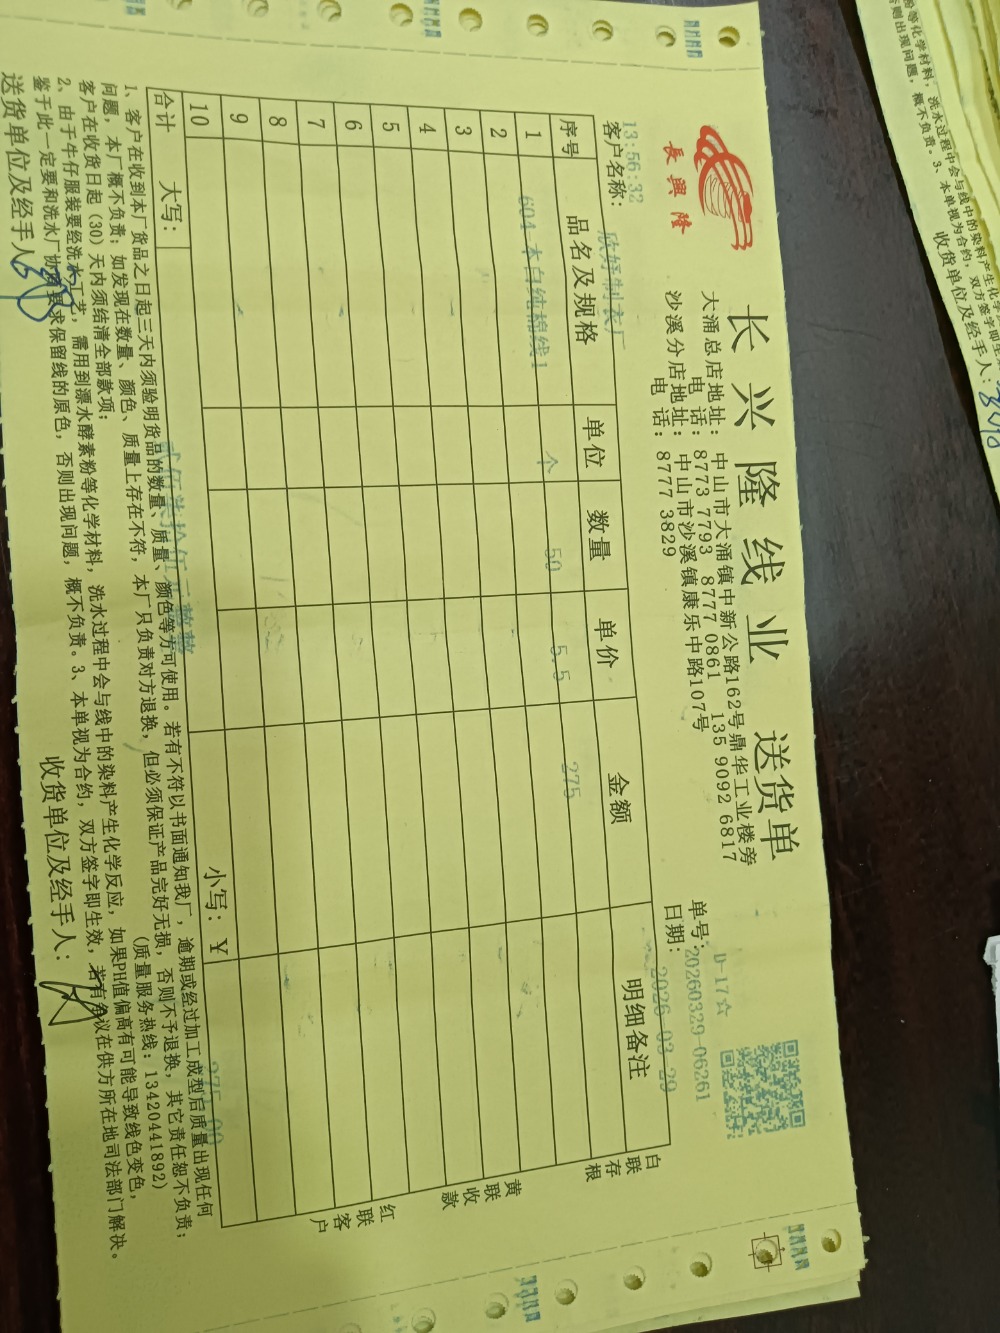 長興隆
长兴隆线业 送货单
大涌总店地址：中山市大涌镇中新公路162号鼎华工业楼旁
电 话：8773 7793 8777 0861 135 9092 6817
沙溪分店地址：中山市沙溪镇康乐中路107号
电 话：8777 3829
D-17☆
单号：20260329-06261
日期：2026-03-29
13:56:32
客户名称：欣好制衣厂
序号 品名及规格 单位 数量 单价 金额 明细备注
1 604 本白纯棉线1 个 50 5.5 275
2
3
4
5
6
7
8
9
10
合计 大写：贰佰柒拾伍元整 小写：￥275.00
白联存根
黄联收款
红联客户
1、客户在收到本厂货品之日起三天内须验明货品的数量、质量、颜色等方可使用。若有不符以书面通知我厂，逾期或经过加工成型后质量出现任何
问题，本厂概不负责；如发现在数量、颜色、质量上存在不符，本厂只负责对方退换，但必须保证产品完好无损，否则不予退换，其它责任恕不负责；
客户在收货日起（30）天内须结清全部款项； （质量服务热线：13420441892）
2、由于牛仔服装要经洗水工艺，需用到漂水酵素粉等化学材料，洗水过程中会与线中的染料产生化学反应，如果PH值偏高有可能导致线色变色，
鉴于此一定要和洗水厂协商要求保留线的原色，否则出现问题，概不负责。3、本单视为合约，双方签字即生效，若有争议在供方所在地司法部门解决。
送货单位及经手人：
收货单位及经手人：
粉等化学材料，洗水过程中会与线中的染料产生化学
否则出现问题，概不负责。3、本单视为合约，双方签字即生效
收货单位及经手人：